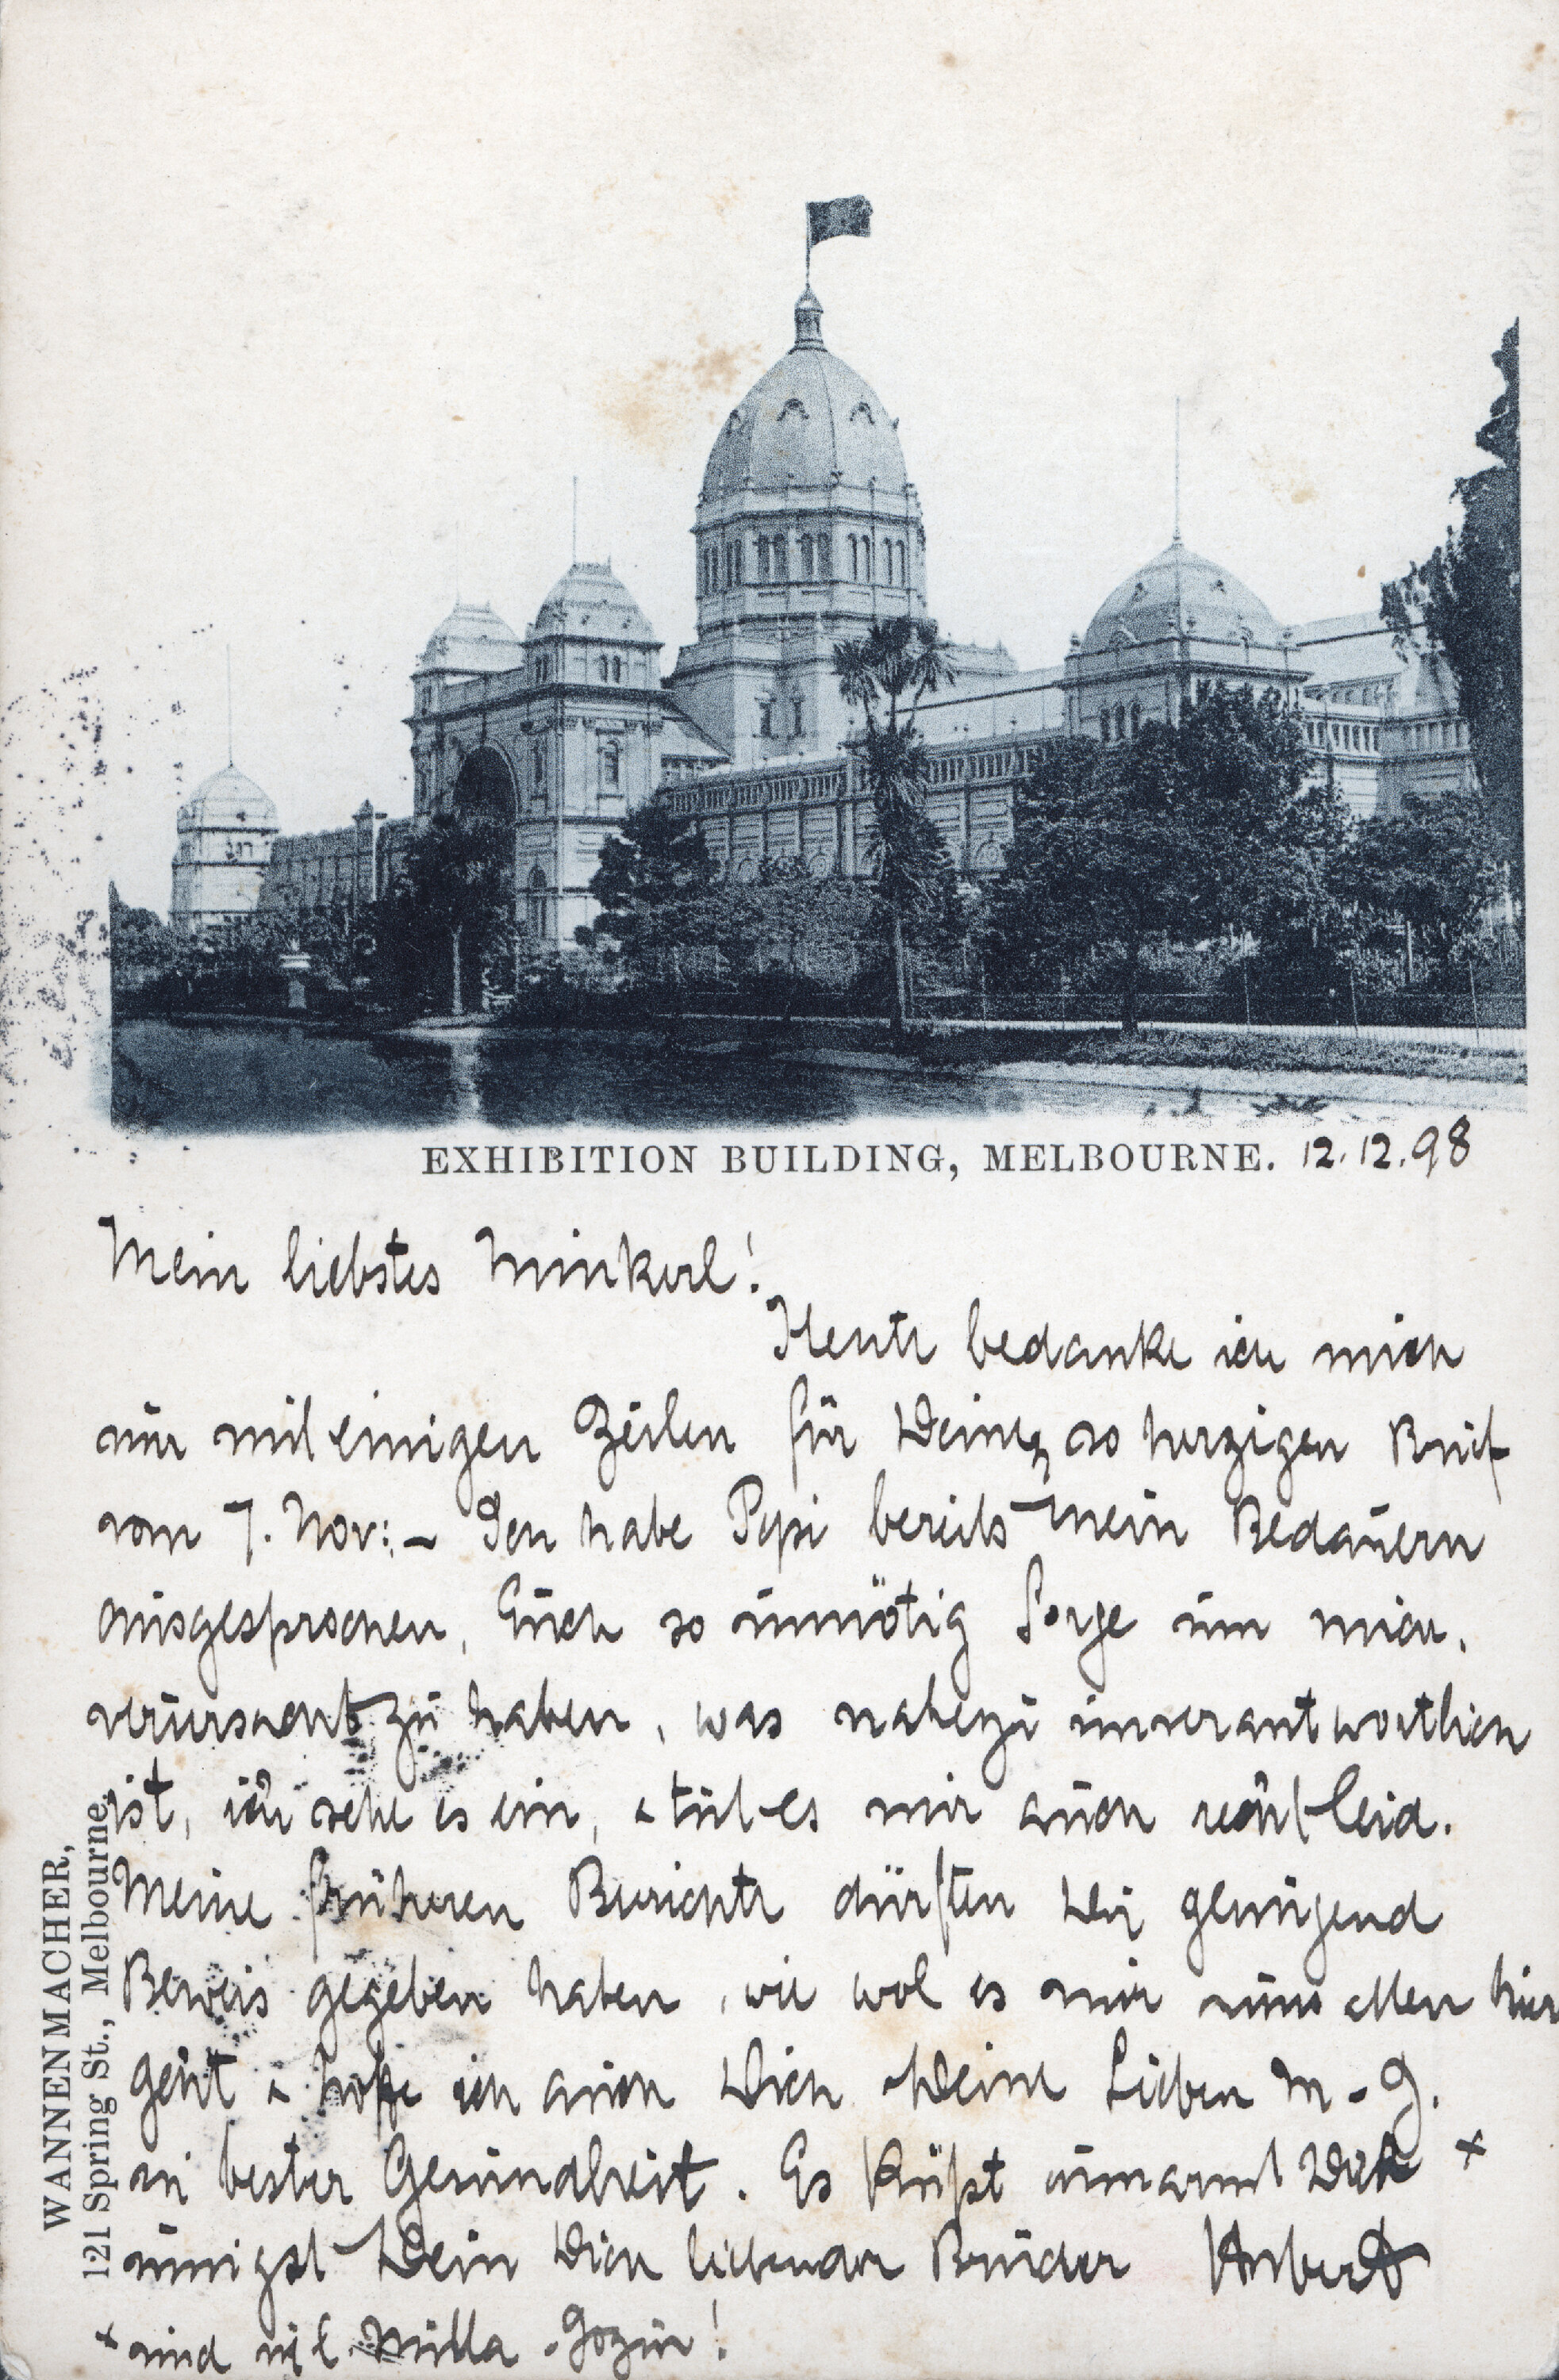 EXHIBITION BUILDING, MELBOURNE. 12.12.98
Mein liebstes Minkerl!
Heute bedanke ich mich
nur mit einigen Zeilen für Deinen so herzigen Brief
vom 7. Nov: – Ich habe Pepi bereits mein Bedauern
ausgesprochen, Euch so unnötig Sorge um mich
verursacht zu haben, was nahezu unverantwortlich
ist, ich sehe es ein, & tut es mir auch recht leid.
Meine früheren Berichte dürften Dir genügend
Beweis gegeben haben, wie wol es mir uns Allen hier
geht & hoffe ich auch Dich & Deine Lieben M – G.
in bester Gesundheit. Es küßt umarmt Dich x
innigst Dein Dich liebender Bruder Herbert
x und Milla
WANNENMACHER,
121 Spring St., Melbourne.